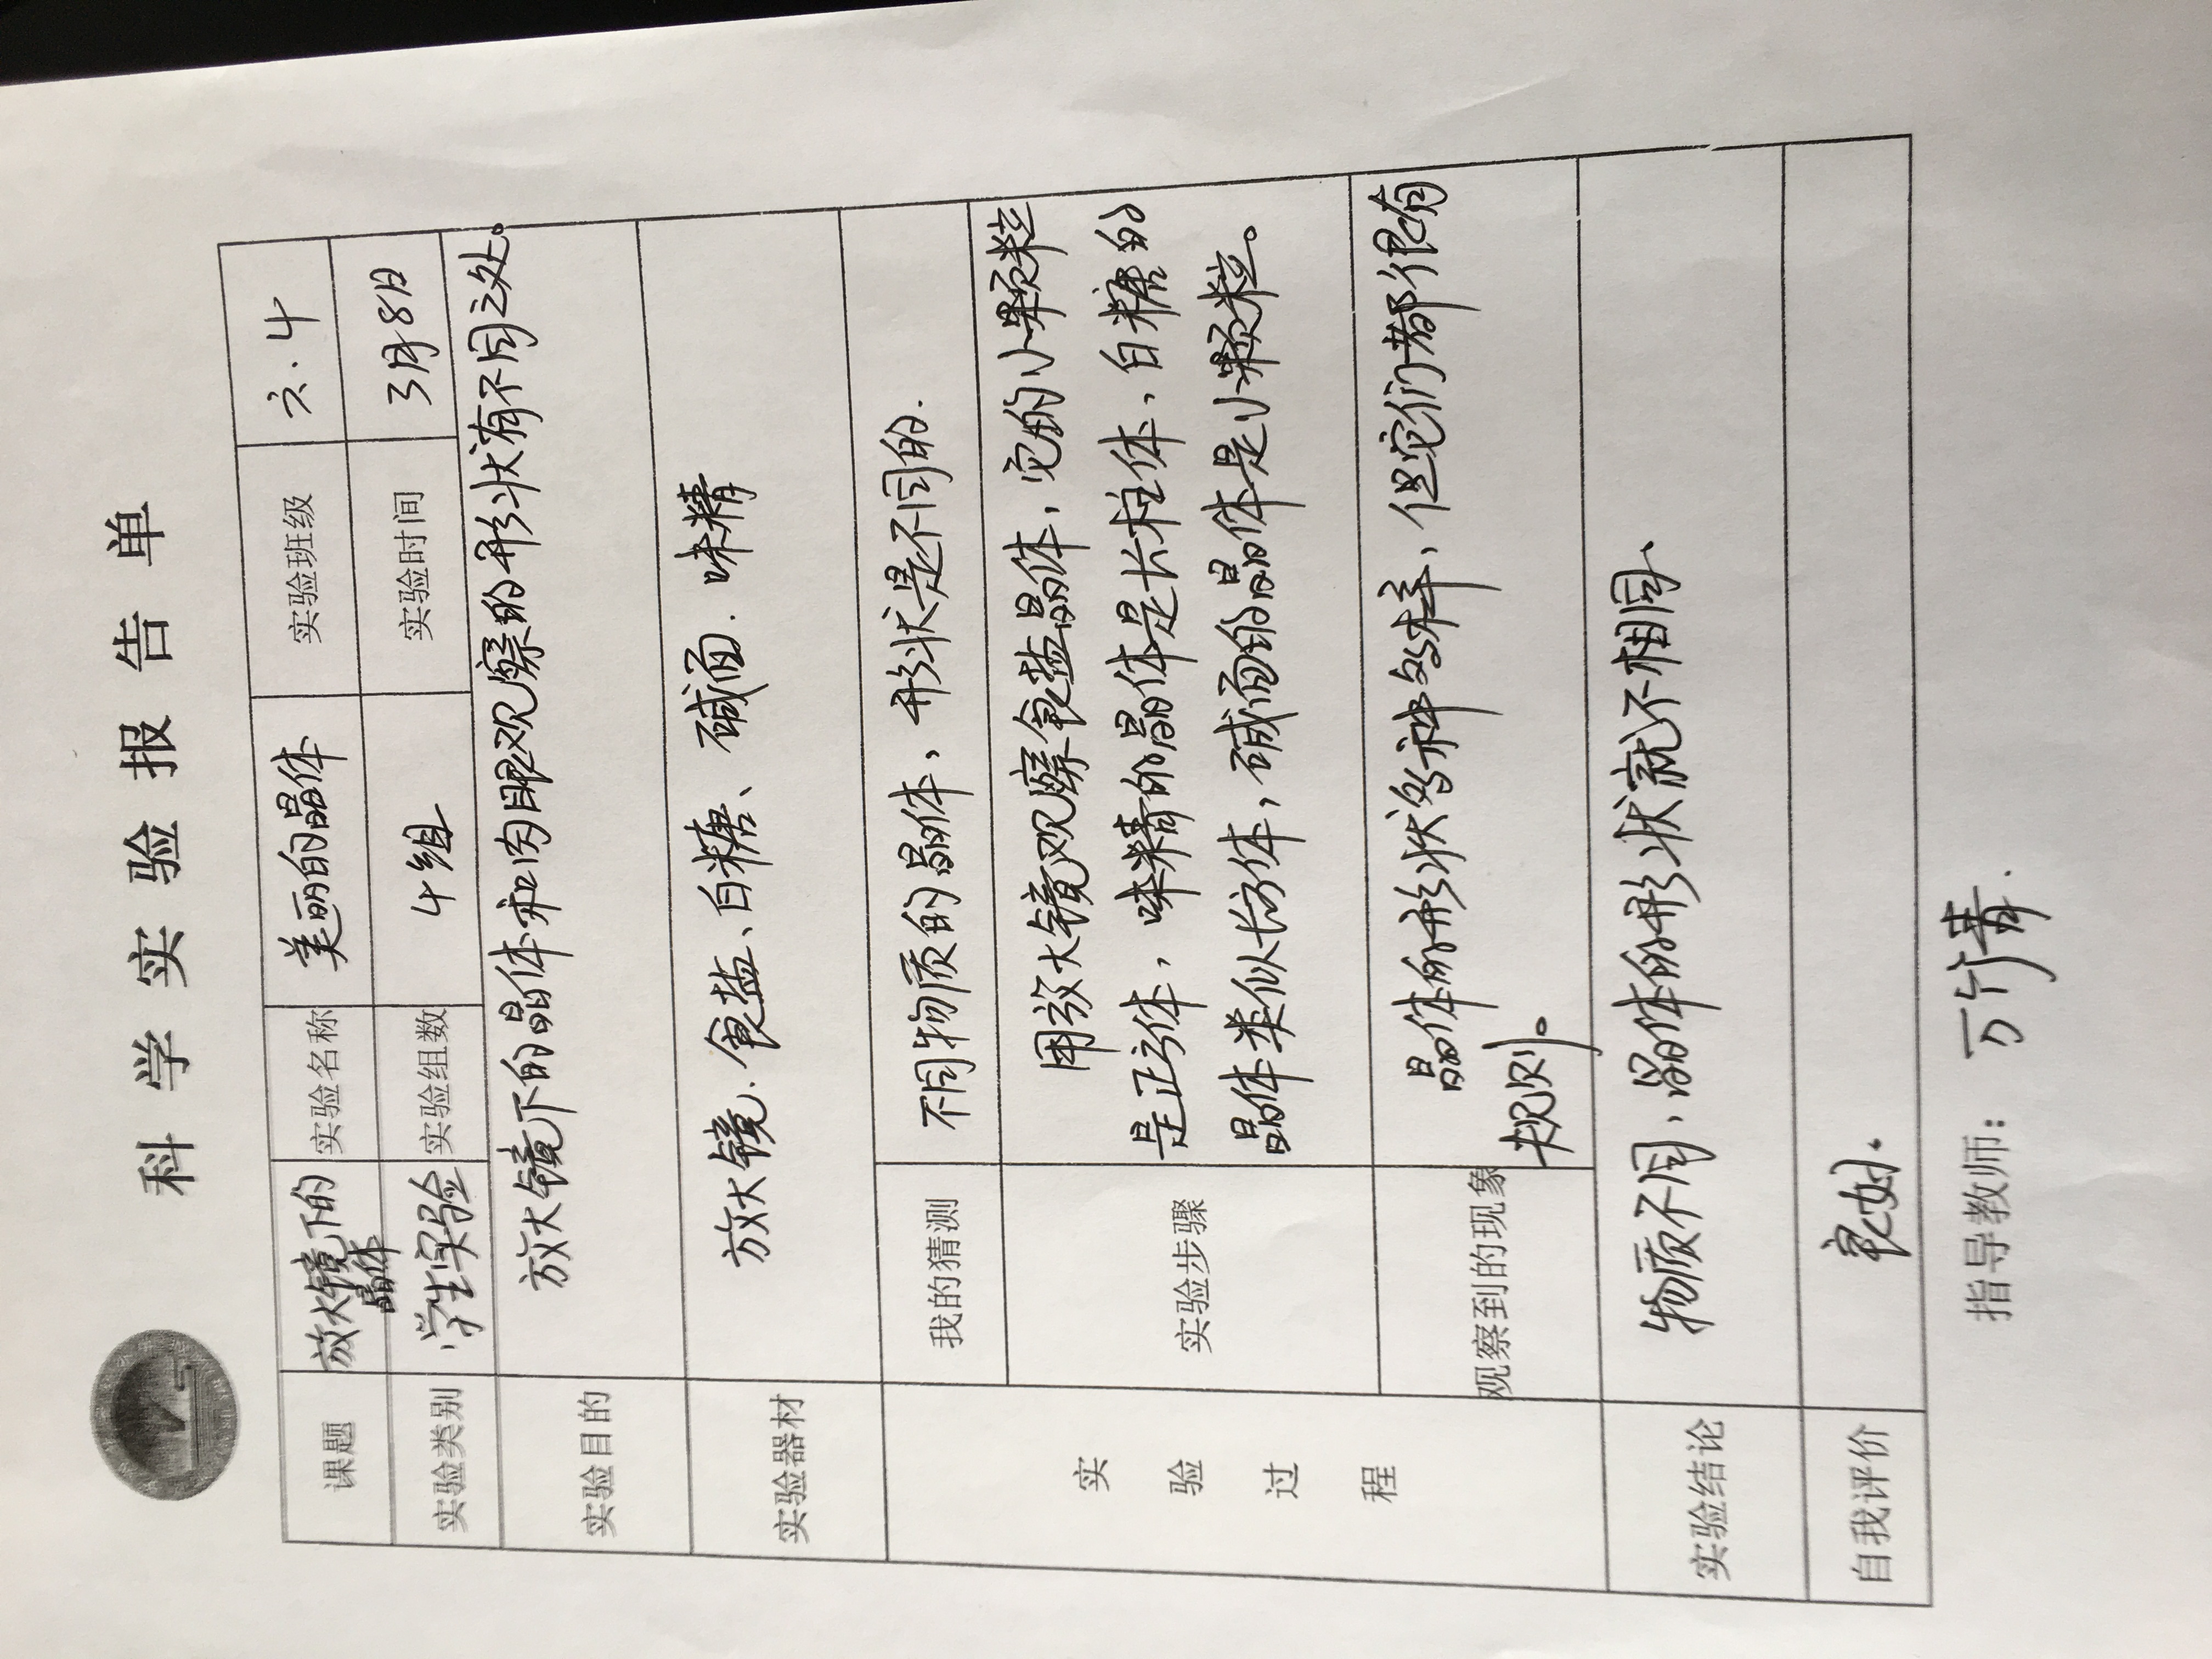 科学实验报告单
课题 放大镜下的晶体 实验名称 美丽的晶体 实验班级 六.4
实验类别 学生实验 实验组数 4组 实验时间 3月8日
实验目的 放大镜下的晶体和肉眼观察的形状有不同之处。
实验器材 放大镜、食盐、白糖、碱面.味精
实验过程
我的猜测 不同物质的晶体,形状是不同的.
实验步骤 用放大镜观察食盐晶体,它的小颗粒
是正方体,味精的晶体是长柱体,白糖的
晶体类似长方体,碱面的晶体是小颗粒。
观察到的现象 晶体的形状多种多样,但它们都很有
规则。
实验结论 物质不同,晶体的形状就不相同、
自我评价 良好.
指导教师: